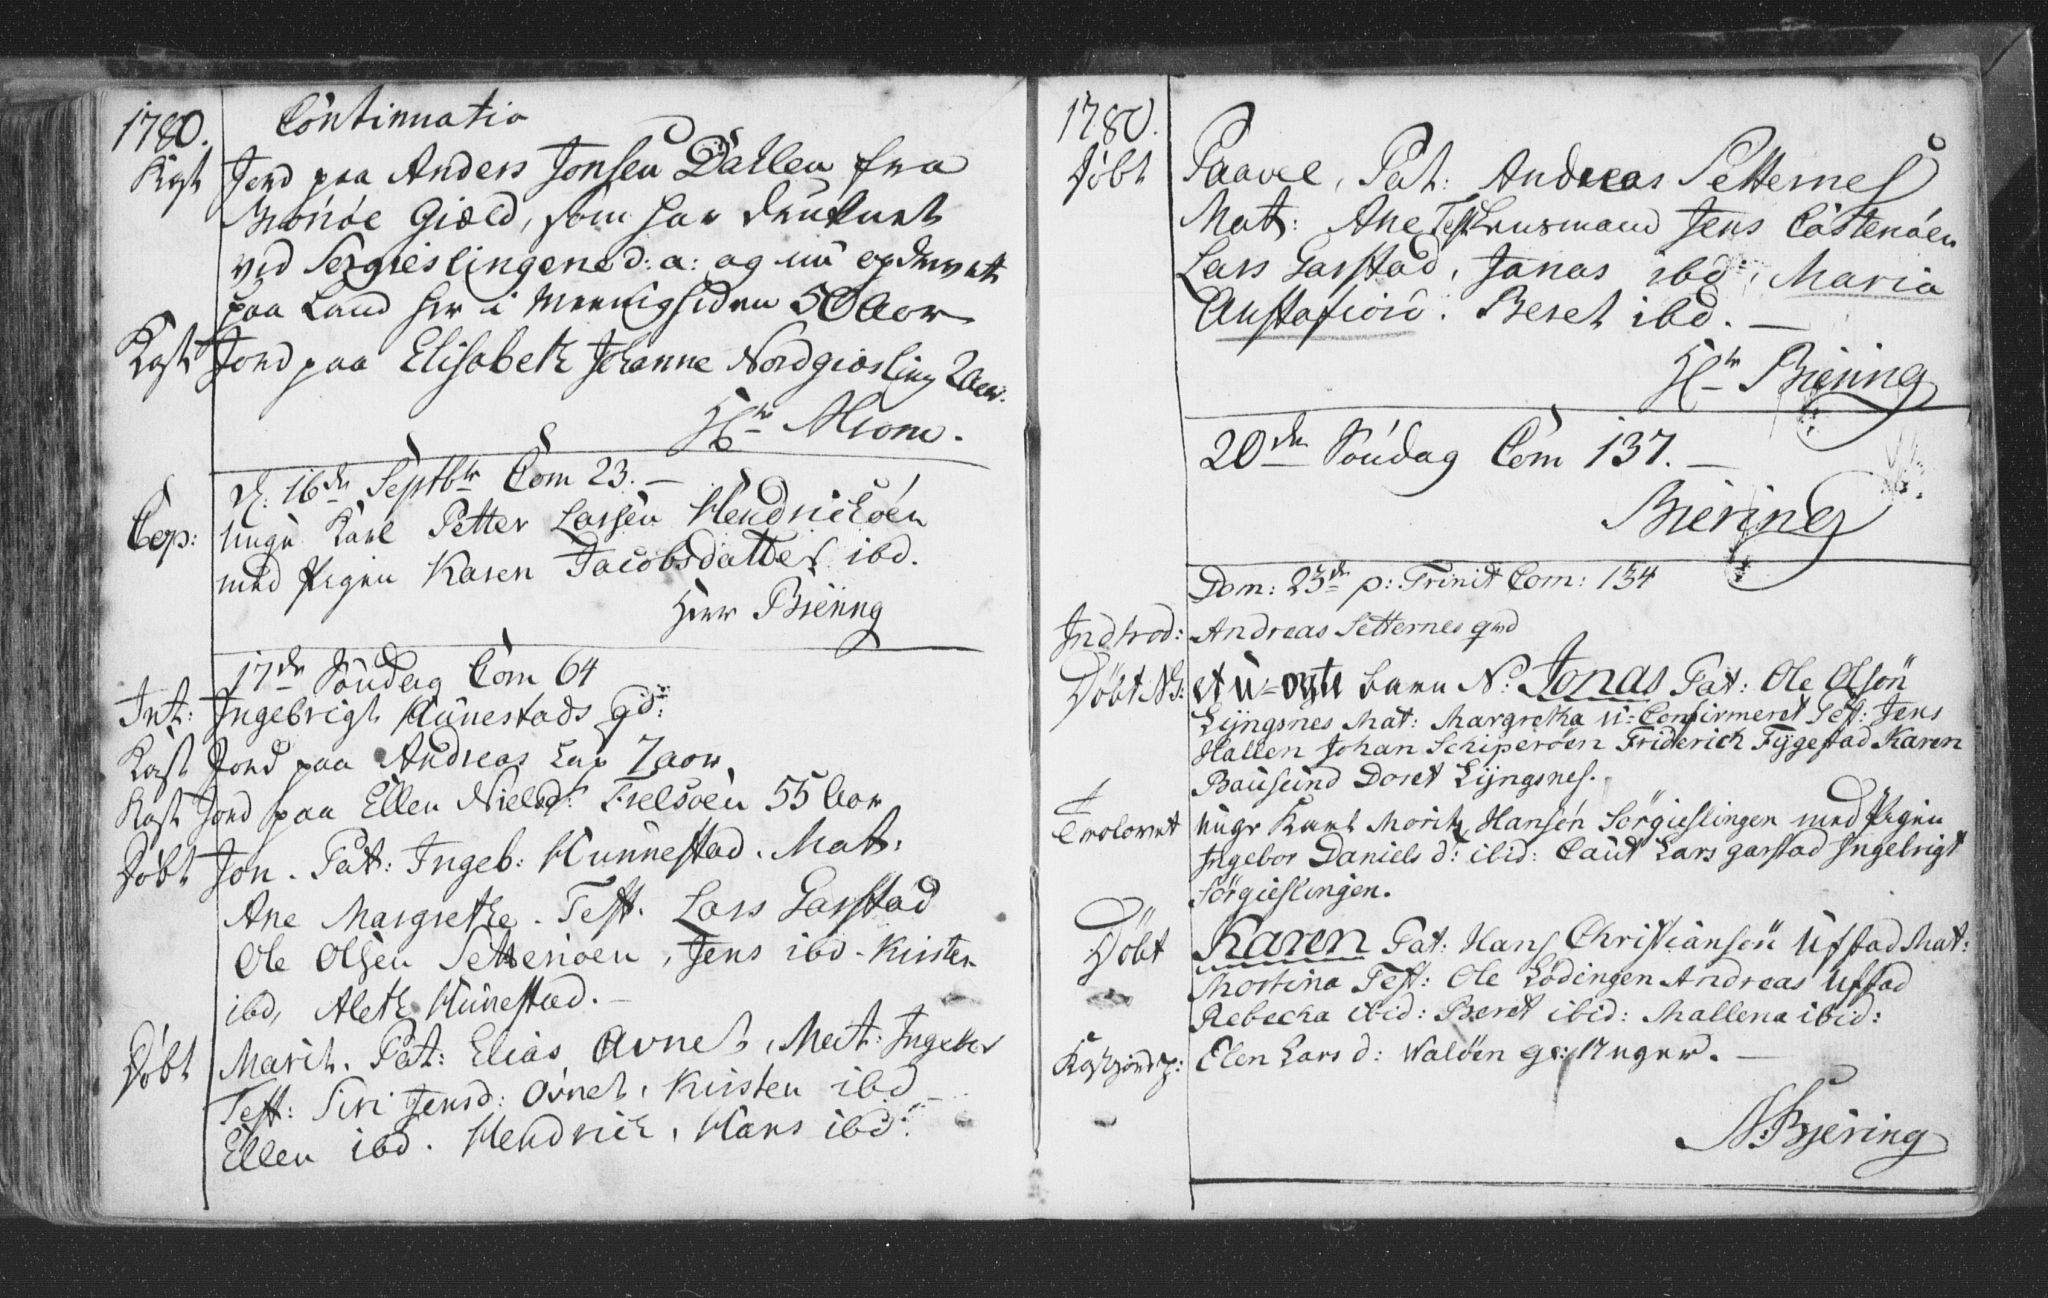 1780. Continuatio
Kast Jord paa Anders Jonsen Dahlen fra
Brönöe Giæld, som har druknet
ved Sørgieslingene d: a: og nu opdrevet
paa Land her i Meenigheden 50 Aar
Kast Jord paa Elisabeth Johanne Nordgiøsling 2 aar.
Hr Krom.
d. 16de Septbr Com 23. —
Cop: unge Karl Petter Larsen Hendrichöen
med Pigen Karen Jacobsdatter ibd.
Herr Biering
17de Søndag Com 64
Int: Ingebrigt Hunestads qd:
Kast Jord paa Andreas Lap 7 aar.
Kast Jord paa Ellen Nielsd: Fielsöen 55 Aar
Døbt Jon. Pat: Ingeb: Hunnestad. Mat:
Ane Margrethe. Test. Lars Garstad
Ole Olsen Setternöen, Jens ibd. Kirsten
ibd, Aleth Hunestad. —
Døbt Marit. Pat: Elias Avnet, Mat: Ingeber
Test: Siri Jensd: Ovnet, Kirsten ibd
Ellen ibd. Hendrich, Hans ibd.
1780.
Døbt Paavel, Pat: Andreas Setternes
Mat: Ane Test: Lensmand Jens Castenöen
Lars Garstad, Jonas ibd, Maria
Austafiord. Beret ibd. —
Hr Biering
20de Søndag Com 137. —
Biering
Dom: 23de p: Trinit Com: 134
Introd: Andreas Setternes qvd
Døbt NB: et u-ægte barn N. Jonas Pat: Ole Olsön
Lyngsnes Mat: Margretha u-Confirmeret Test: Jens
Hallen Johan Schiperöen Friderich Fygestad Karen
Bausund Doret Lyngsnes.
Trolovet unge Karl Moritz Hansön Sörgieslingen med Pigen
Ingebor Daniels d: ibid: Caut Lars garstad Ingebrigt
Sörgieslingen.
Døbt Karen Pat: Hans Christiansön Ufstad Mat:
Mortina Test: Ole Lödingen Andreas Ufstad
Rebecha ibid: Beret ibid: Mallena ibid:
Kastjord p: Elen Lars d: Walöen gl: 17 uger. —
N: Bjering